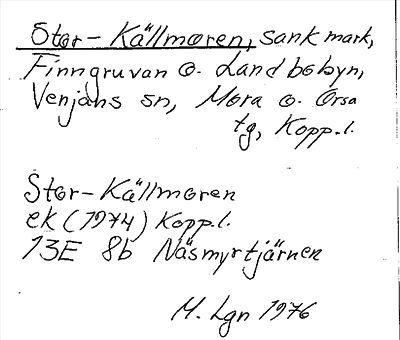 Stor-Källmoren, sank mark,
Finngruvan o. Landbobyn,
Venjans sn, Mora o. Orsa
tg, Kopp.l.
Stor-Källmoren
ek (1974) Kopp.l.
13E 8b Näsmyrtjärnen
M. Lgn 1976